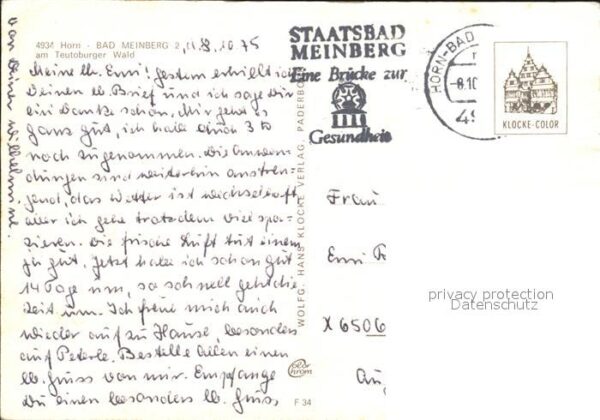 4934 Horn - BAD MEINBERG 2, 8.10.75
am Teutoburger Wald
Meine lb. Emi! Gestern erhielt ich
Deinen lb Brief und ich sage Dir
ein Danke schön. Mir geht es
ganz gut, ich habe auch 3 tb
noch zugenommen. Die Anwen-
dungen sind weiterhin anstren-
gend, das Wetter ist wechselhaft
aber ich gehe trotzdem viel spa-
zieren. Die frische Luft tut einem
ja gut. Jetzt habe ich schon gut
14 Tage um, so schnell geht die
Zeit um. Ich freue mich auch
wieder auf zu Hause, besonders
auf Peterle. Bestelle allen einen
lb. Gruss von mir. Empfange
Du einen besonders lb. Gruss
von Deiner Wilhelmine
WOLFG. HANS KLOCKE VERLAG, PADERBO
color
chrom
F 34
STAATSBAD
MEINBERG
Eine Brücke zur
Gesundheit
HORN-BAD
-8.10
49
KLOCKE-COLOR
Frau
Emi
X 6506
privacy protection
Datenschutz